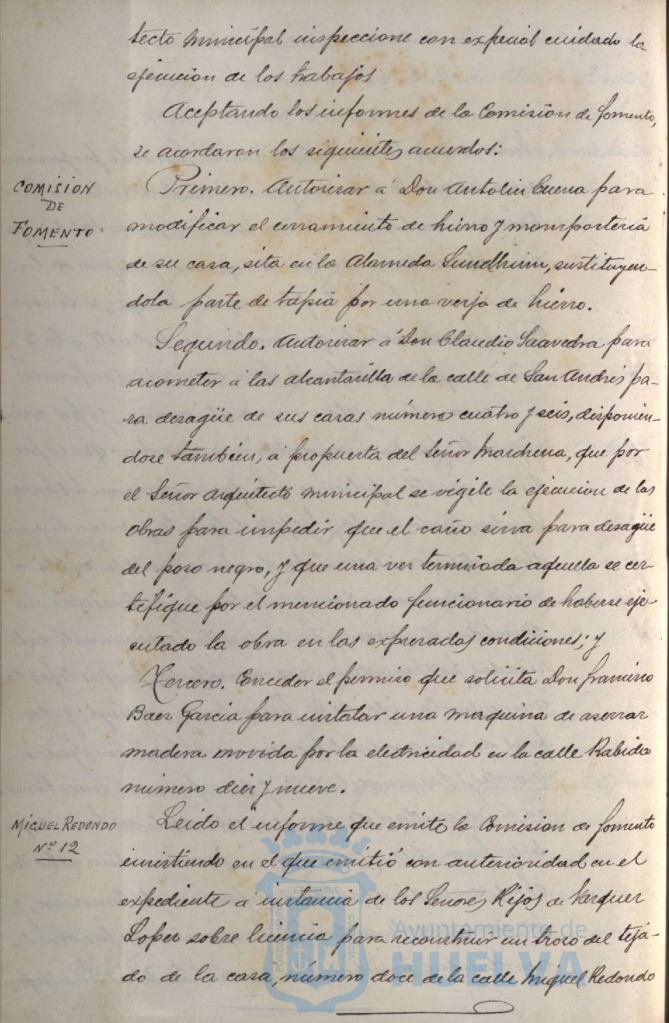 tecto municipal inspeccione con especial cuidado la
ejecucion de los trabajos
Aceptando los informes de la Comision de fomento,
se acordaron los siguientes acuerdos:
COMISION
DE
FOMENTO
Primero. Autorizar á Don Antolin Cuena para
modificar el cerramiento de hierro y mamposteria
de su casa, sita en la Alameda Sundhein, sustituyen-
dola parte de tapia por una verja de hierro.
Segundo. Autorizar á Don Claudio Saavedra para
acometer á las alcantarilla de la calle de San Andrés pa-
ra desagüe de sus casas número cuatro y seis, disponien-
dose también, á propuesta del Señor Marchena, que por
el Señor Arquitecto municipal se vigile la ejecucion de las
obras para impedir que el caño sirva para desagüe
del pozo negro, y que una vez terminada aquella se cer-
tifique por el mencionado funcionario de haberse eje-
cutado la obra en las expresadas condiciones; y
Tercero. Conceder el permiso que solicita Don Francisco
Baez Garcia para instalar una maquina de aserrar
madera movida por la electricidad en la calle Rabida
número diez y nueve.
MIGUEL REDONDO
Nº 12
Leido el informe que emite la Comision de fomento
insistiendo en el que emitió con anterioridad en el
expediente a instancia de los Señores Hijos de Vazquez
Lopez sobre licencia para reconstruir un trozo del teja-
do de la casa, número doce de la calle Miguel Redondo
Ayuntamiento de
HUELVA